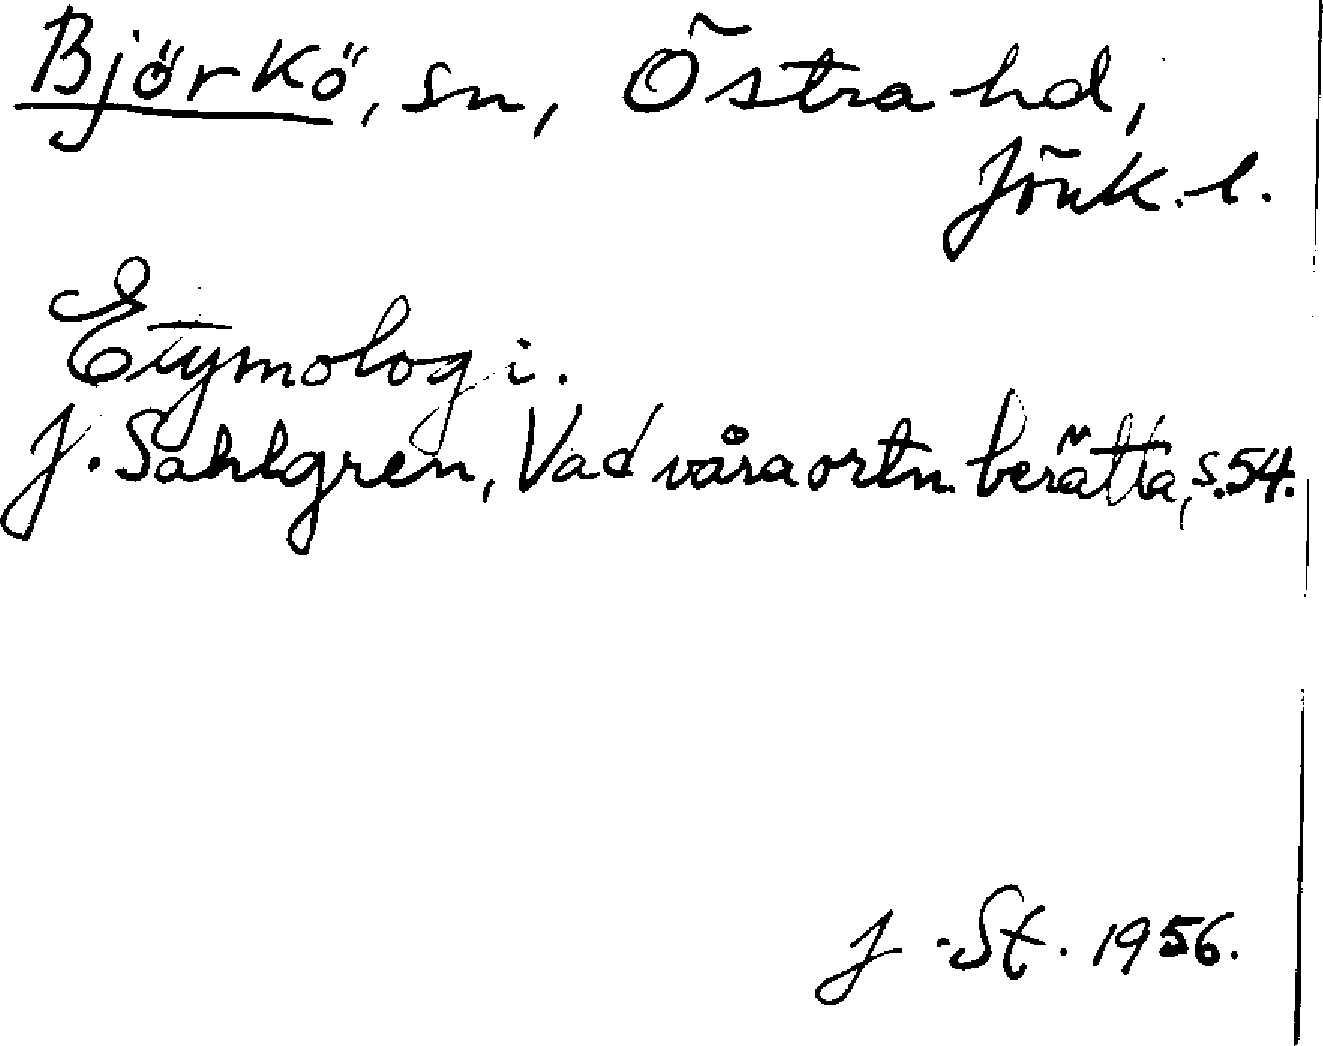 Björkö, sn, Östra hd,
Jönk. l.
Etymologi.
J. Sahlgren, Vad våra ortn. berätta, s. 54.
J. St. 1956.